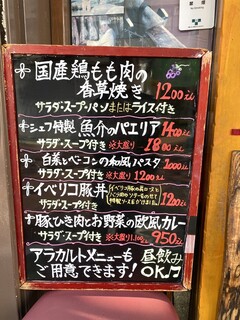 国産鶏もも肉の
香草焼き 1200えん
サラダ・スープ・パンまたはライス付き
シェフ特製 魚介のパエリア 1400えん
サラダ・スープ付き ※大盛り 1800えん
白菜とベーコンの和風パスタ 1000えん
サラダ・スープ付き 大盛り 1200えん
イベリコ豚丼
サラダ・スープ付き 1200えん
豚ひき肉とお野菜の欧風カレー
サラダ・スープ付き ※大盛り1,100えん 950えん
アラカルトメニューも 昼飲み
ご用意できます! OK♬